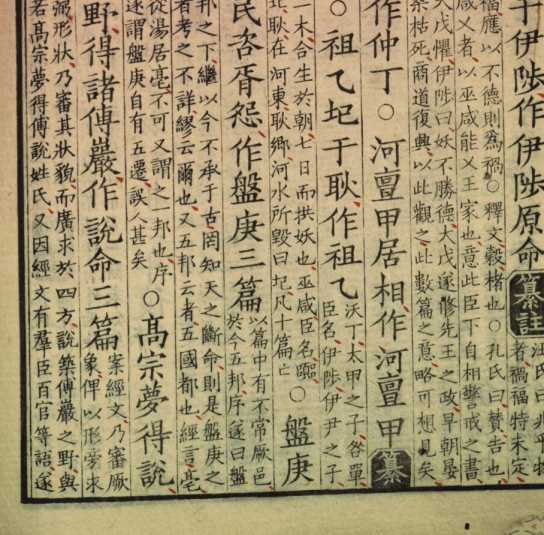 于伊陟作伊陟原命纂註
汪氏曰兆乎物
者禍福特未定
福應以不德則為禍○釋文穀楮也○孔氏曰贊告也
咸乂者以巫咸能乂王家也意此臣下自相警戒之書
大戊懼伊陟曰妖不勝德大戊遂修先王之政早朝晏
桑枯死商道復興以此觀之此數篇之意略可想見矣
作仲丁○河亶甲居相作河亶甲纂
○祖乙圮于耿作祖乙
沃丁太甲之子各單
臣名伊陟伊尹之子
一木合生於朝七日而拱妖也巫咸臣名囂
圮耿在河東耿鄉河水所毀曰圮凡十篇亡○盤庚
民咨胥怨作盤庚三篇
以篇中有不常厥邑
於今五邦序遂曰盤
邦之下繼以今不承于古罔知天之斷命則是盤庚之
者考之不詳繆云爾也又五邦云者五國都也經言亳
從湯居亳不可又謂之一邦也序
遂謂盤庚自有五遷誤人甚矣○高宗夢得說
野得諸傅巖作說命三篇
案經文乃審厥
象俾以形旁求
弼形狀乃審其狀貌而廣求於四方說築傅巖之野與
若高宗夢得傅說姓氏又因經文有羣臣百官等語遂